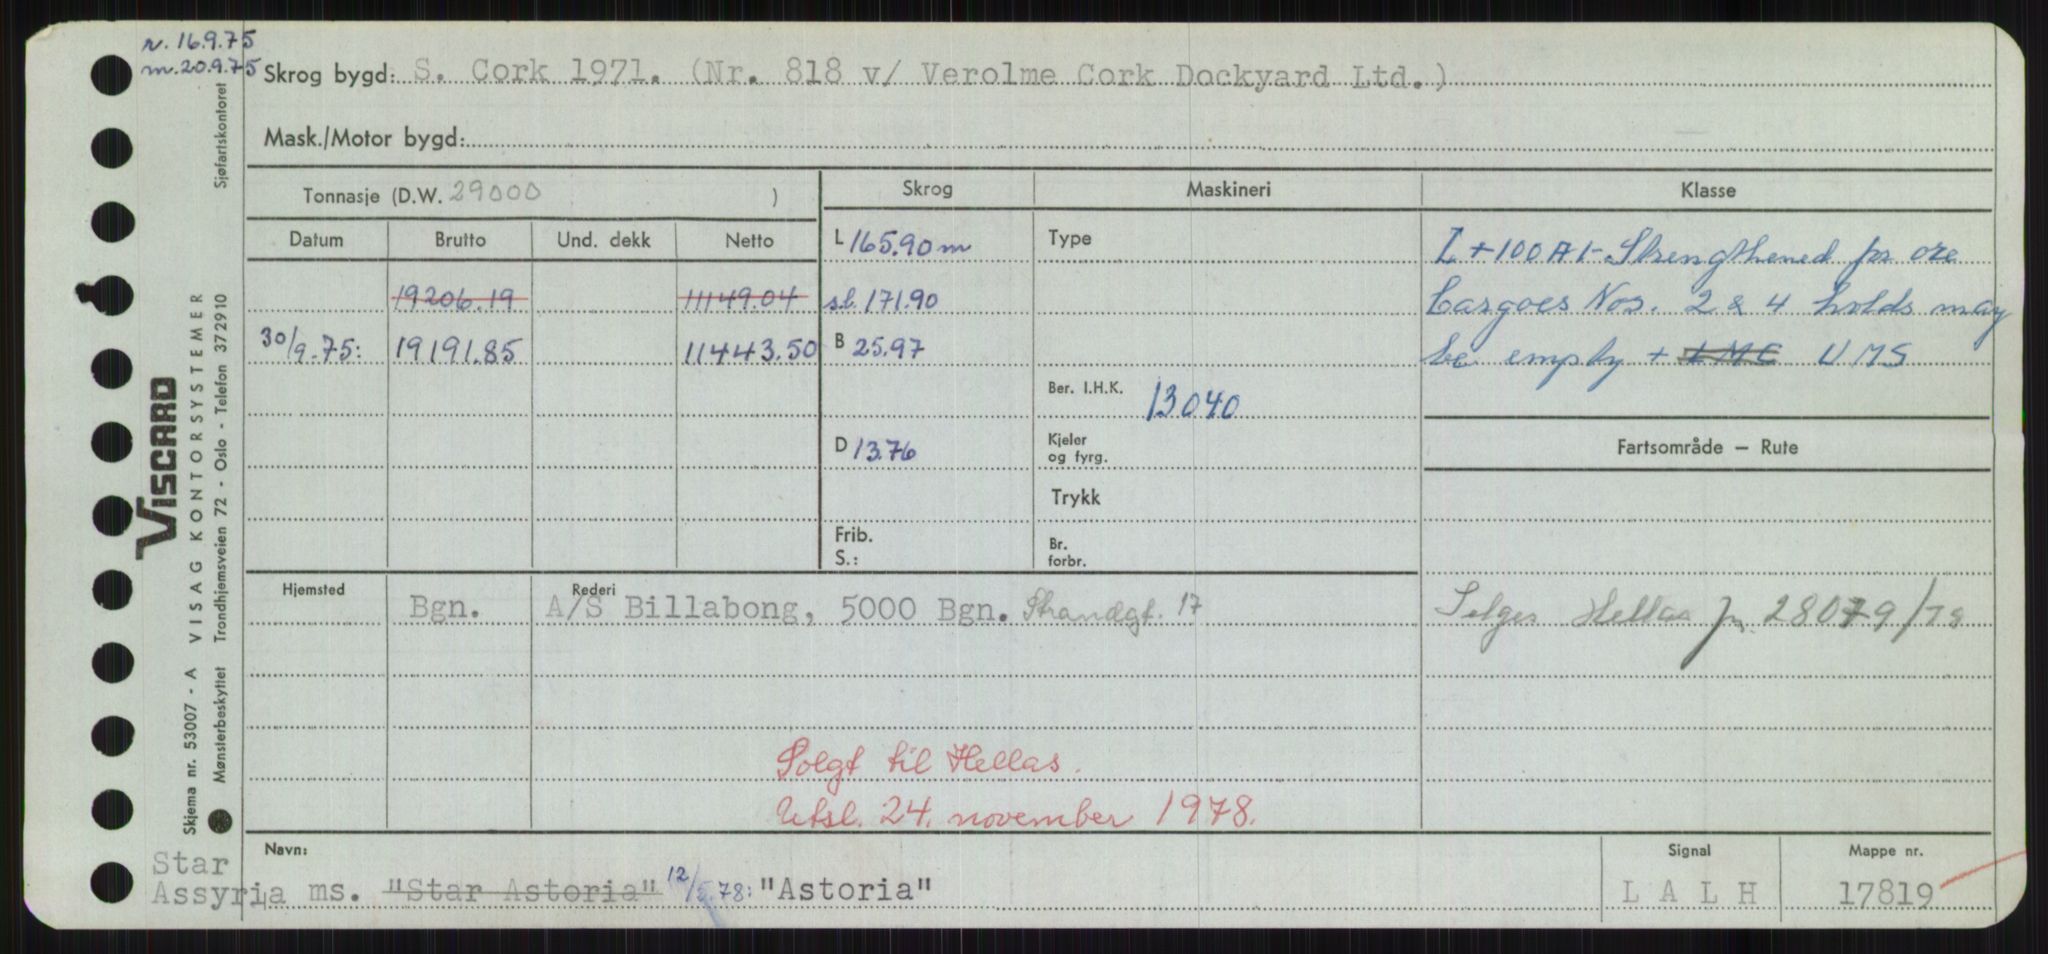 r. 16.9.75
m. 20.9.75
Skrog bygd: S. Cork 1971. (Nr. 818 v/ Verolme Cork Dockyard Ltd.)
Mask./Motor bygd:
Tonnasje (D.W. 29000 )
Skrog
Maskineri
Klasse
Datum Brutto Und. dekk Netto
L 165.90 m
Type
+100A1- Strengthened for ore
19206.19 11149.04
s.l. 171.90
Cargoes Nos. 2 & 4 holds may
30/9-75: 19191.85 11443.50
B 25.97
be empty + LMC UMS
Ber. I.H.K. 13040
D 13.76
Kjeler
og fyrg.
Fartsområde – Rute
Trykk
Frib.
S.:
Br.
forbr.
Hjemsted Bgn.
Rederi A/S Billabong, 5000 Bgn. Strandgt. 17
Selges Hellas
Solgt til Hellas.
Utsl. 24. november 1978.
Navn:
Star
Assyria ms. "Star Astoria" 12/5.78: "Astoria"
Signal
L A L H
Mappe nr.
17819
VISCARD
Skjema nr. 53007 - A VISAG KONTORSYSTEMER
Mønsterbeskyttet Trondhjemsveien 72 - Oslo - Telefon 372910 Sjøfartskontoret